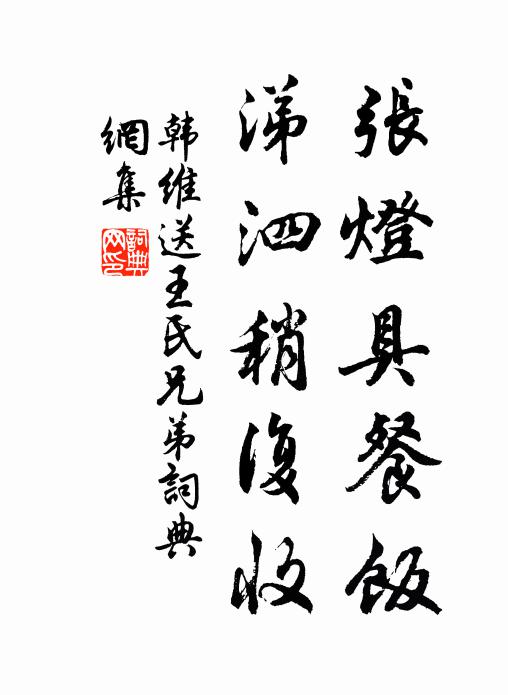 張燈具餐飯
涕泗稍復收
韩維送王氏兄弟詞典
網集
詞典網印